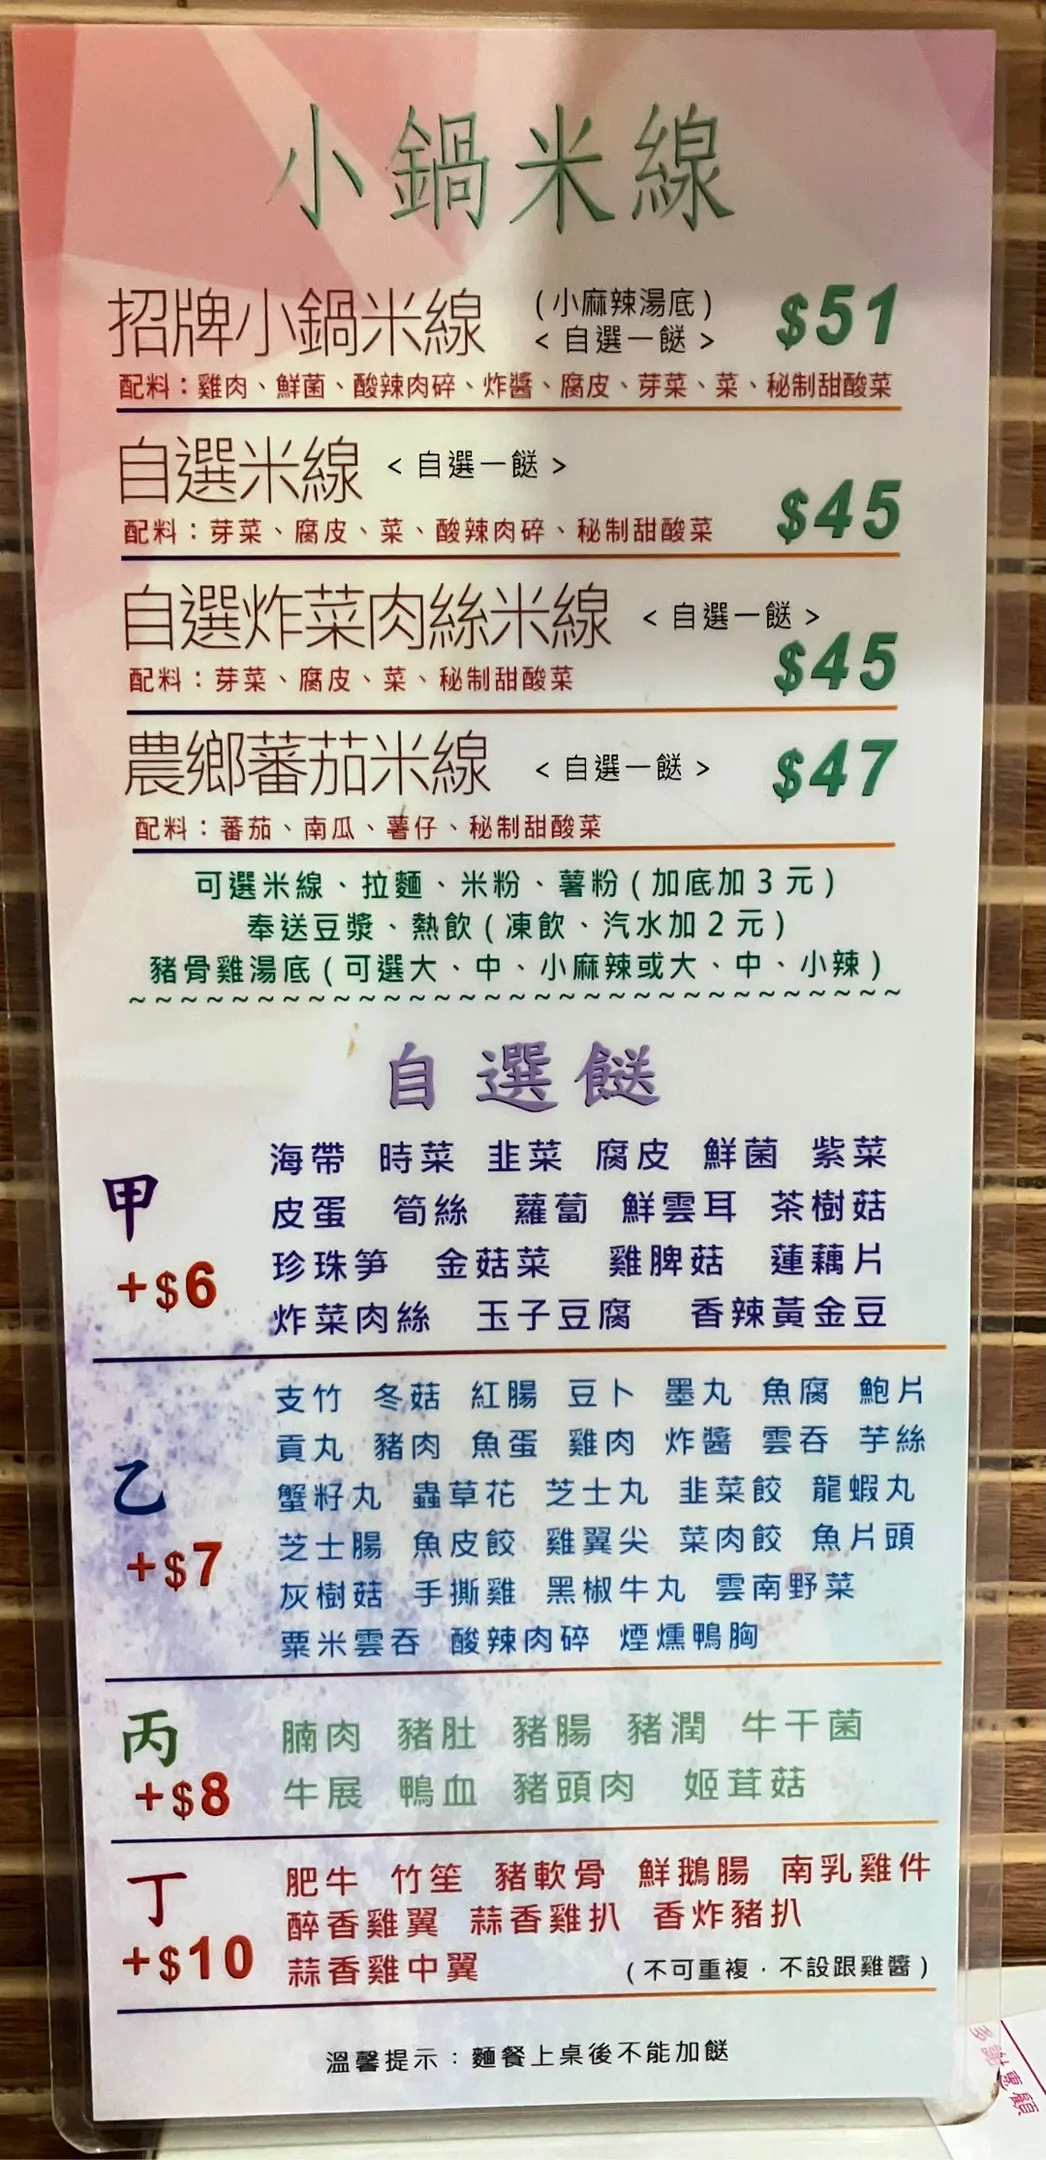 小鍋米線
招牌小鍋米線 (小麻辣湯底) $51
< 自選一餸 >
配料：雞肉、鮮菌、酸辣肉碎、炸醬、腐皮、芽菜、菜、秘制甜酸菜
自選米線 < 自選一餸 >
$45
配料：芽菜、腐皮、菜、酸辣肉碎、秘制甜酸菜
自選炸菜肉絲米線 < 自選一餸 >
$45
配料：芽菜、腐皮、菜、秘制甜酸菜
農鄉蕃茄米線 < 自選一餸 > $47
配料：蕃茄、南瓜、薯仔、秘制甜酸菜
可選米線、拉麵、米粉、薯粉(加底加3元)
奉送豆漿、熱飲(凍飲、汽水加2元)
豬骨雞湯底(可選大、中、小麻辣或大、中、小辣)
~~~~~~~~~~~~~~~~~~~~~~~~~~~~~~~
自選餸
甲
+$6
海帶 時菜 韭菜 腐皮 鮮菌 紫菜
皮蛋 筍絲 蘿蔔 鮮雲耳 茶樹菇
珍珠笋 金菇菜 雞脾菇 蓮藕片
炸菜肉絲 玉子豆腐 香辣黃金豆
乙
+$7
支竹 冬菇 紅腸 豆卜 墨丸 魚腐 鮑片
貢丸 豬肉 魚蛋 雞肉 炸醬 雲吞 芋絲
蟹籽丸 蟲草花 芝士丸 韭菜餃 龍蝦丸
芝士腸 魚皮餃 雞翼尖 菜肉餃 魚片頭
灰樹菇 手撕雞 黑椒牛丸 雲南野菜
粟米雲吞 酸辣肉碎 煙燻鴨胸
丙
+$8
腩肉 豬肚 豬腸 豬潤 牛干菌
牛展 鴨血 豬頭肉 姬茸菇
丁
+$10
肥牛 竹笙 豬軟骨 鮮鵝腸 南乳雞件
醉香雞翼 蒜香雞扒 香炸豬扒
蒜香雞中翼 (不可重複．不設跟雞醬)
溫馨提示：麵餐上桌後不能加餸
多謝惠顧